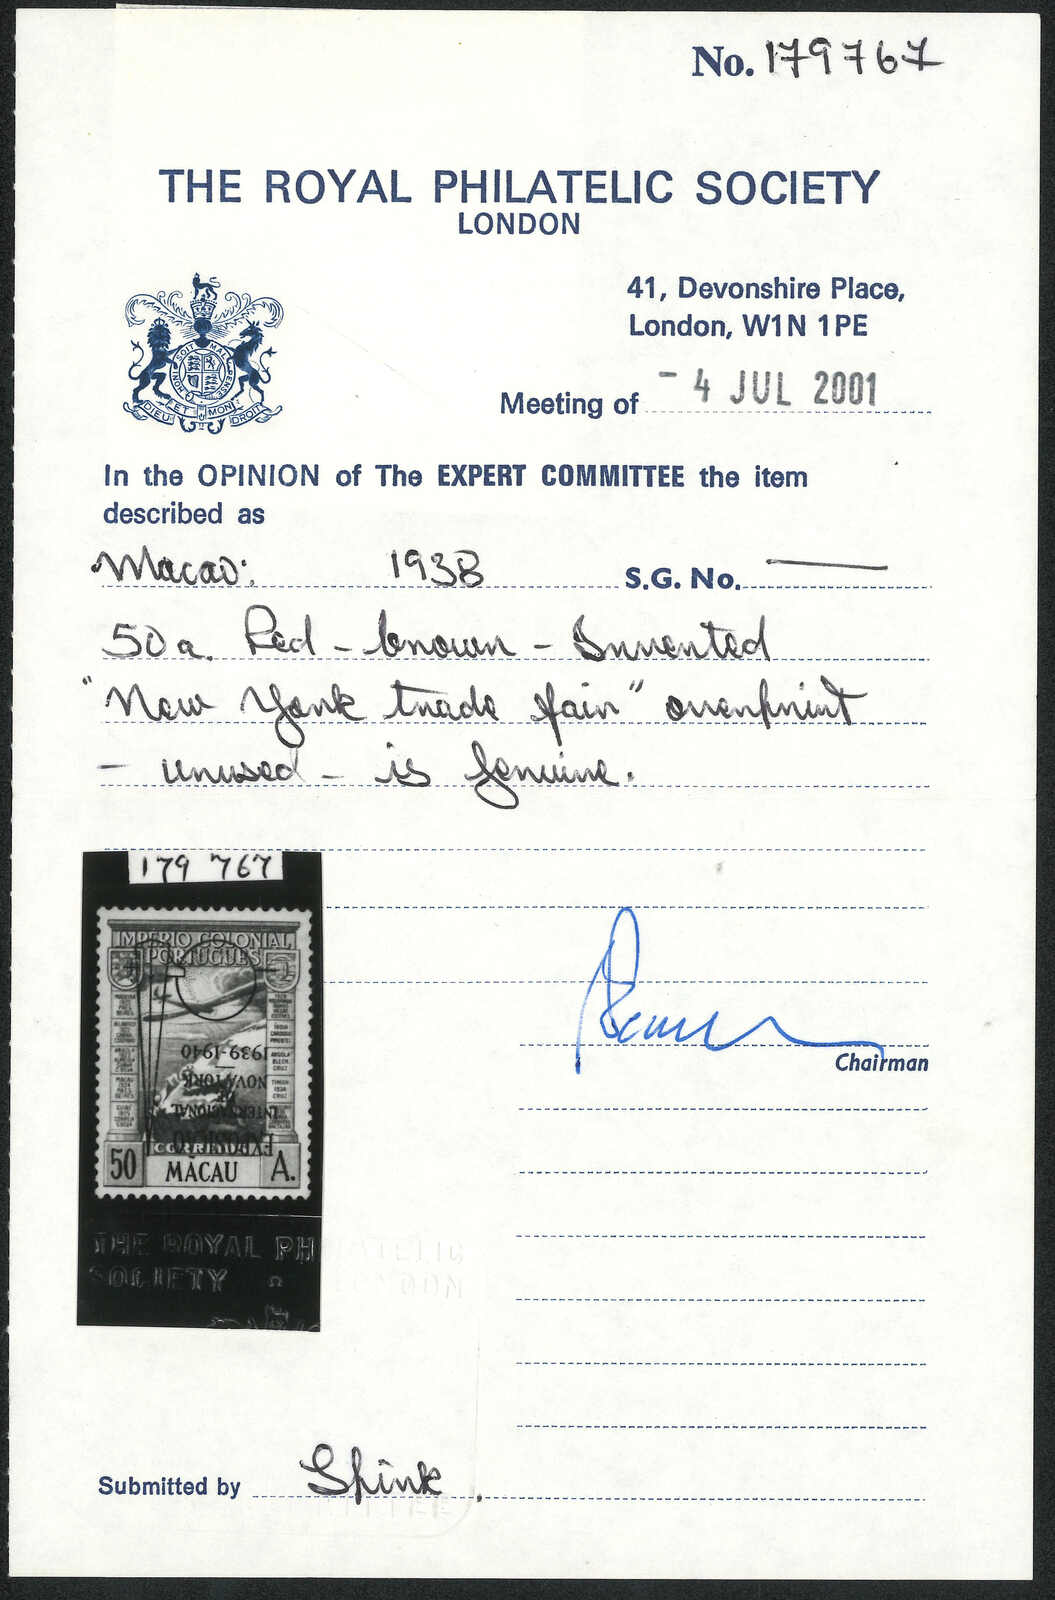 No. 179767
THE ROYAL PHILATELIC SOCIETY
LONDON
41, Devonshire Place,
London, W1N 1PE
DIEU ET MON DROIT
Meeting of - 4 JUL 2001
In the OPINION of The EXPERT COMMITTEE the item
described as
Macao: 1938 S.G. No. —
50a. Red - brown - Inverted
"New York trade fair" overprint
- unused - is genuine.
179 767
IMPERIO COLONIAL
PORTUGUES
1939-1940
NOVA YORK
DE
INTERNACIONAL
EXPOSIÇÃO
CORREIO
50 MACAU A.
Chairman
THE ROYAL PHILATELIC
SOCIETY LONDON
Submitted by Spink.